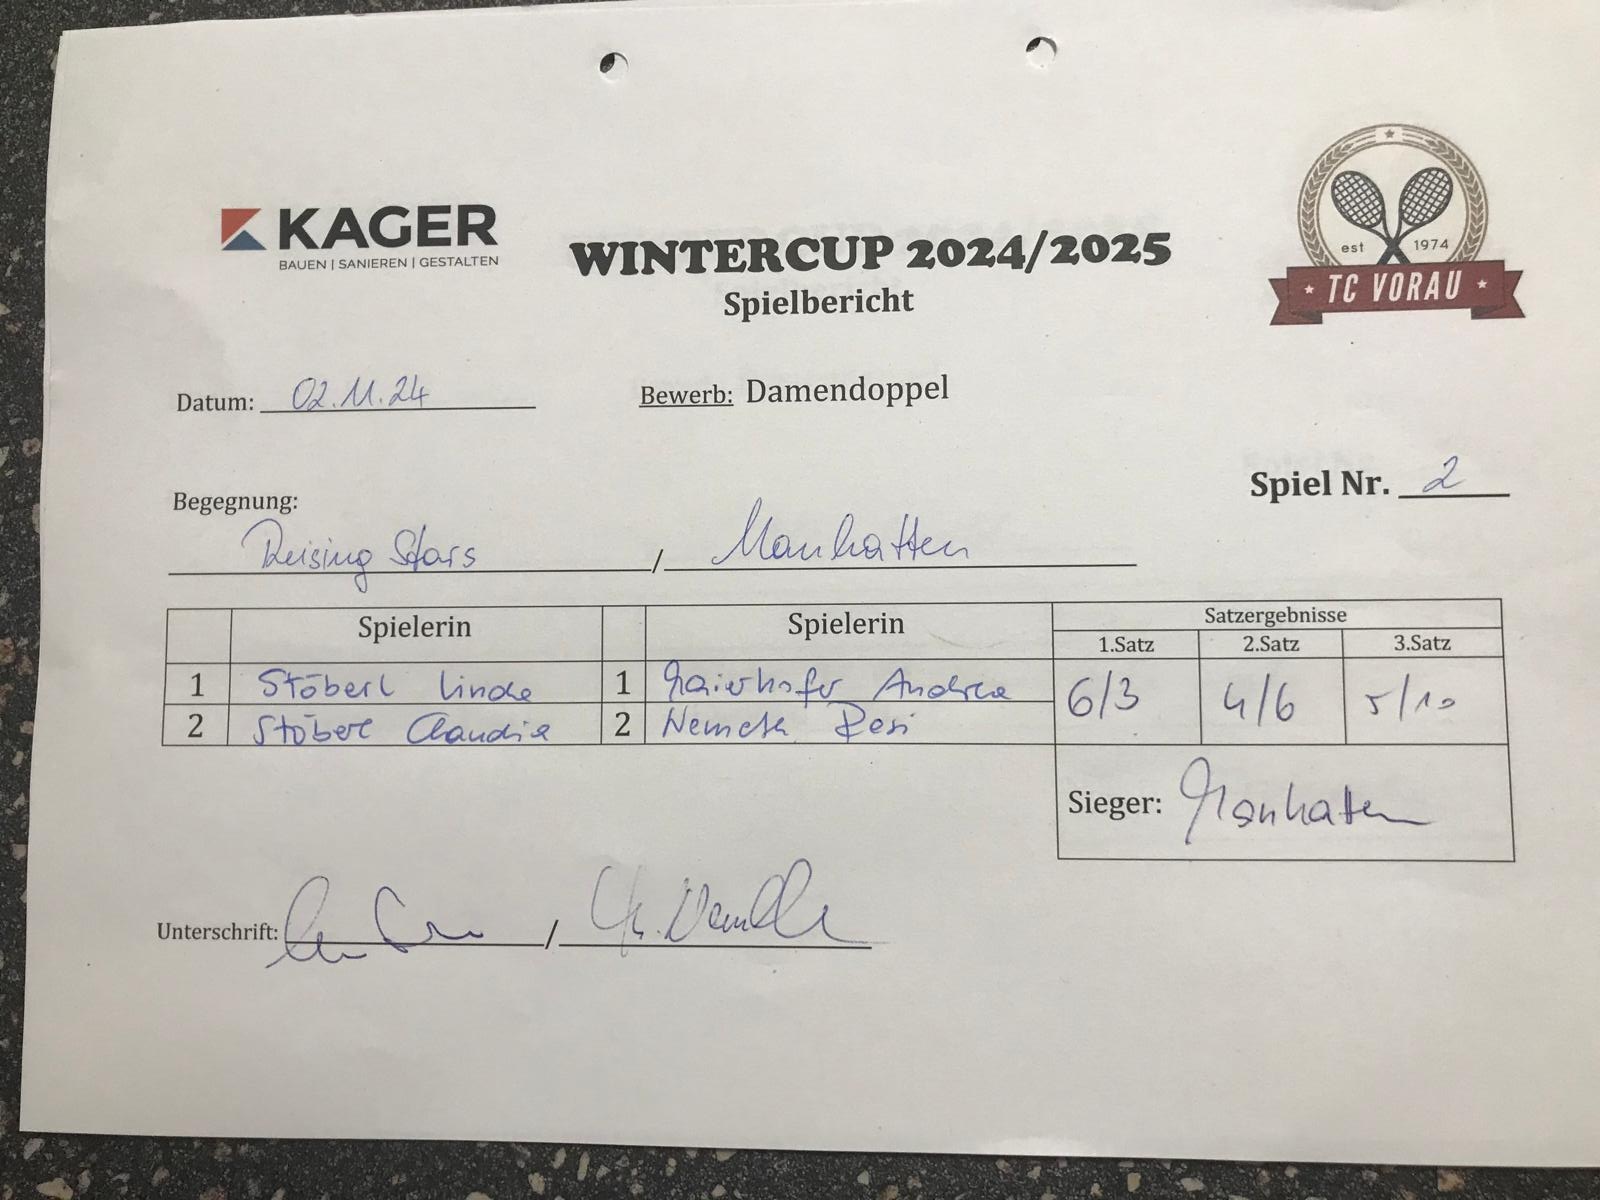 KAGER
BAUEN | SANIEREN | GESTALTEN
WINTERCUP 2024/2025
Spielbericht
est 1974
TC VORAU
Datum: 02.11.24
Bewerb: Damendoppel
Spiel Nr. 2
Begegnung:
Reising Stars / Manhatten
Spielerin Spielerin Satzergebnisse
1.Satz 2.Satz 3.Satz
1 Stöberl Linde 1 Maierhofer Andrea 6/3 4/6 5/10
2 Stöberl Claudia 2 Nemeth Resi
Sieger: Manhatten
Unterschrift: /